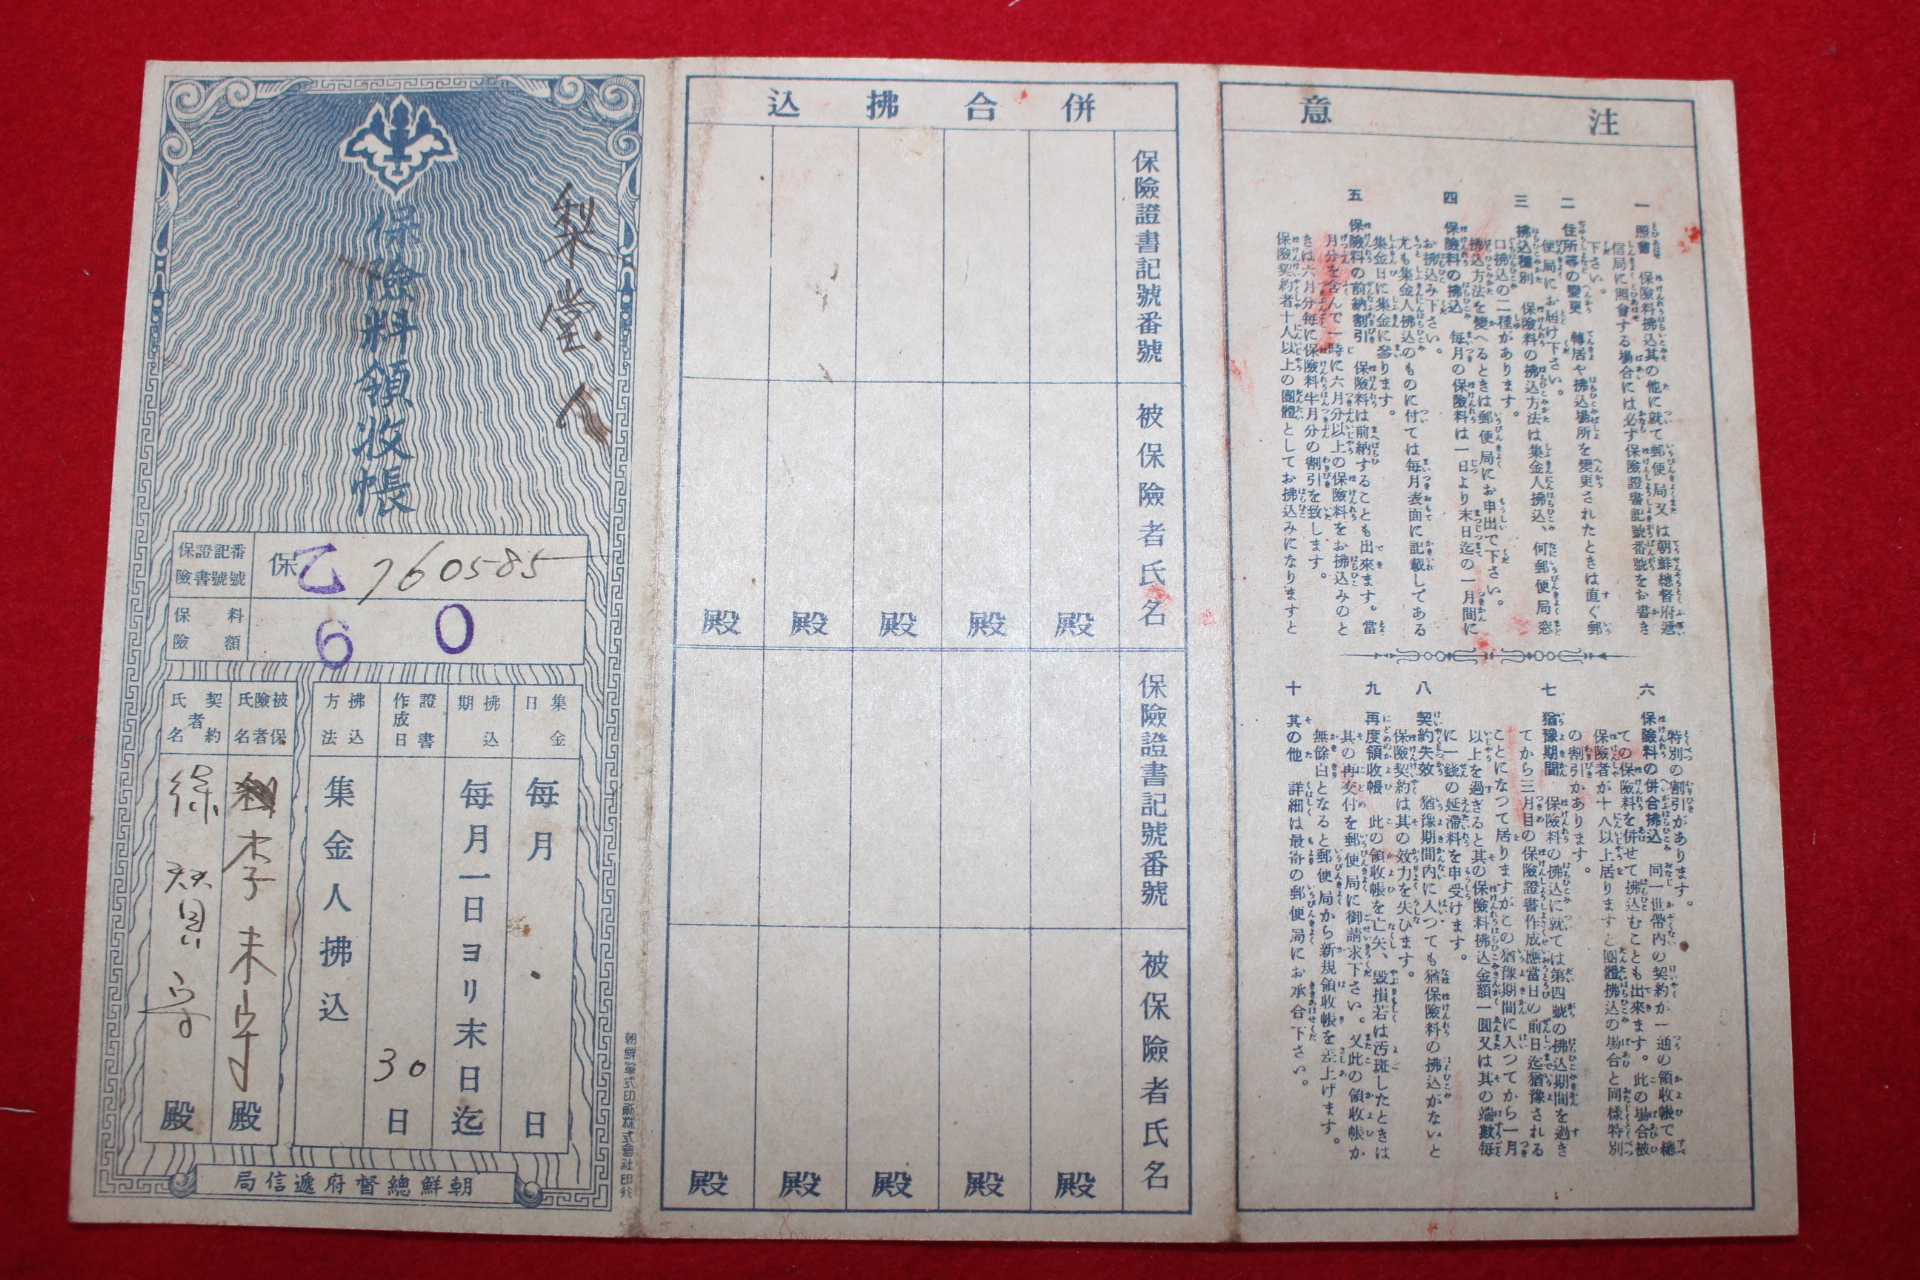 注意
一 照會 保險料拂込其の他に就て郵便局又は朝鮮總督府遞
信局に照會する場合には必ず保險證書記號番號をお書き
下さい。
二 住所等の變更 轉居や拂込場所を變更されたときは直ぐ郵
便局にお届け下さい。
三 拂込種別 保險料の拂込方法は集金人拂込、何郵便局窓
口拂込の二種があります。
拂込方法を變へるときは郵便局にお申出で下さい。
四 保險料の拂込 毎月の保險料は一日より末日迄の一月間に
お拂込み下さい。
尤も集金人拂込のものに付ては毎月表面に記載してある
集金日に集金に參ります。
五 保險料の前納割引 保險料は前納することも出來ます。當
月分を含んで一時に六月分以上の保險料をお拂込みのと
きは六月分毎に保險料半月分の割引を致します。
保險契約者十人以上の團體としてお拂込みになりますと
特別の割引があります。
六 保險料の併合拂込 同一世帶內の契約が一通の領收帳で總
ての保險料を併せて拂込むことも出來ます。此の場合被
保險者が十人以上居りますと團體拂込の場合と同樣特別
の割引があります。
七 猶豫期間 保險料の拂込に就ては第四號の拂込期間を過ぎ
てから三月目の保險證書作成應當日の前日迄猶豫される
ことになつて居りますがこの猶豫期間に入つてから一月
以上を過ぎると其の保險料拂込金額一圓又は其の端數每
に一錢の延滯料を申受けます。
八 契約失效 猶豫期間內に入つても猶保險料の拂込がないと
保險契約は其の效力を失ひます。
九 再度領收帳 此の領收帳を亡失、毀損若は汚斑したときは
其の再交付を郵便局に御請求下さい。又此の領收帳が
無餘白となると郵便局から新規領收帳を差上げます。
十 其の他 詳細は最寄の郵便局にお承合下さい。
併合拂込
保險證書記號番號
被保險者氏名
殿 殿 殿 殿 殿
保險證書記號番號
被保險者氏名
殿 殿 殿 殿 殿
保險料領收帳
保險證書記號番號
保 乙 760585
保險料額
6 0
集金日
毎月 日
拂込期
毎月一日ヨリ末日迄
證書作成日
30日
拂込方法
集金人拂込
被保險者氏名
李 殿
契約者氏名
殿
朝鮮總督府遞信局